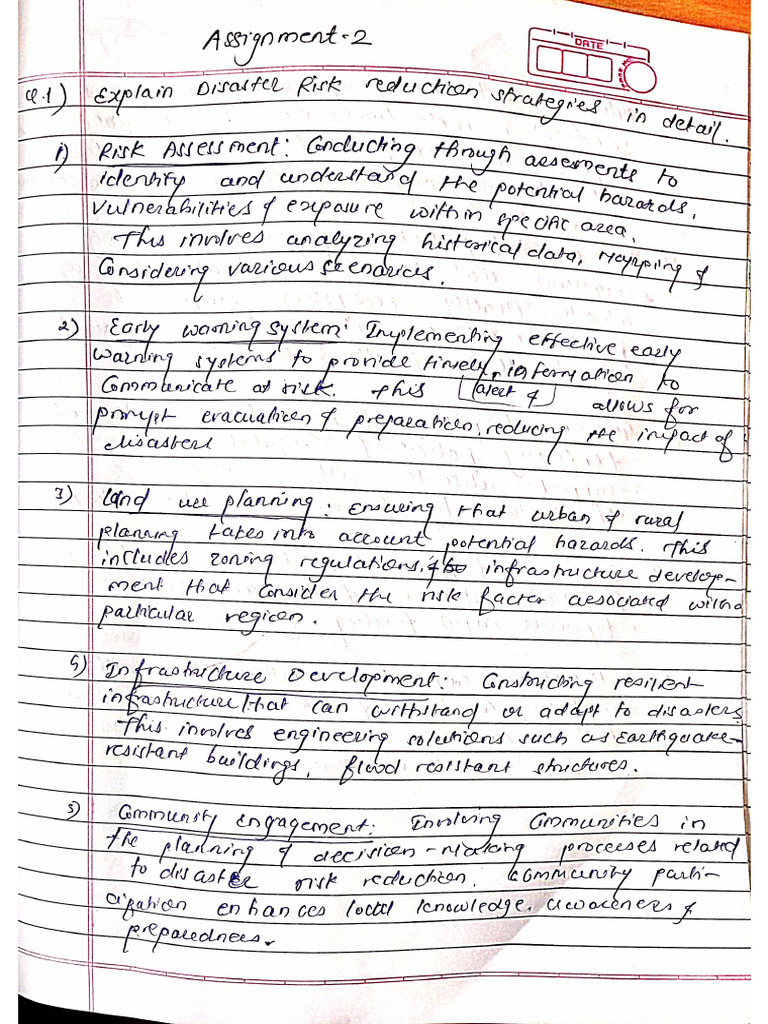 Assignment-2
DATE
Q.1) Explain Disaster Risk reduction strategies in detail.
1) Risk Assessment: Conducting through assesments to
identify and understand the potential hazards,
vulnerabilities & exposure within specific area.
This involves analyzing historical data, Mapping &
Considering various scenarios.
2) Early warning system: Implementing effective early
warning systems to provide timely information to
Communicate at risk. This (alert &) allows for
prompt evacuation & preparation, reducing the impact of
disasters
3) Land use planning: ensuring that urban & rural
planning takes into account potential hazards. This
includes zoning regulations, & infrastructure develop-
ment that consider the risk factor associated with a
particular region.
4) Infrastructure Development: Constructing resilient
infrastructure that can withstand or adapt to disasters.
This involves engineering solutions such as Earthquake-
resistant buildings, flood resistant structures.
5) Community Engagement: Involving Communities in
the planning & decision-making processes related
to disaster risk reduction. Community parti-
cipation enhances local knowledge, awareness &
preparedness.